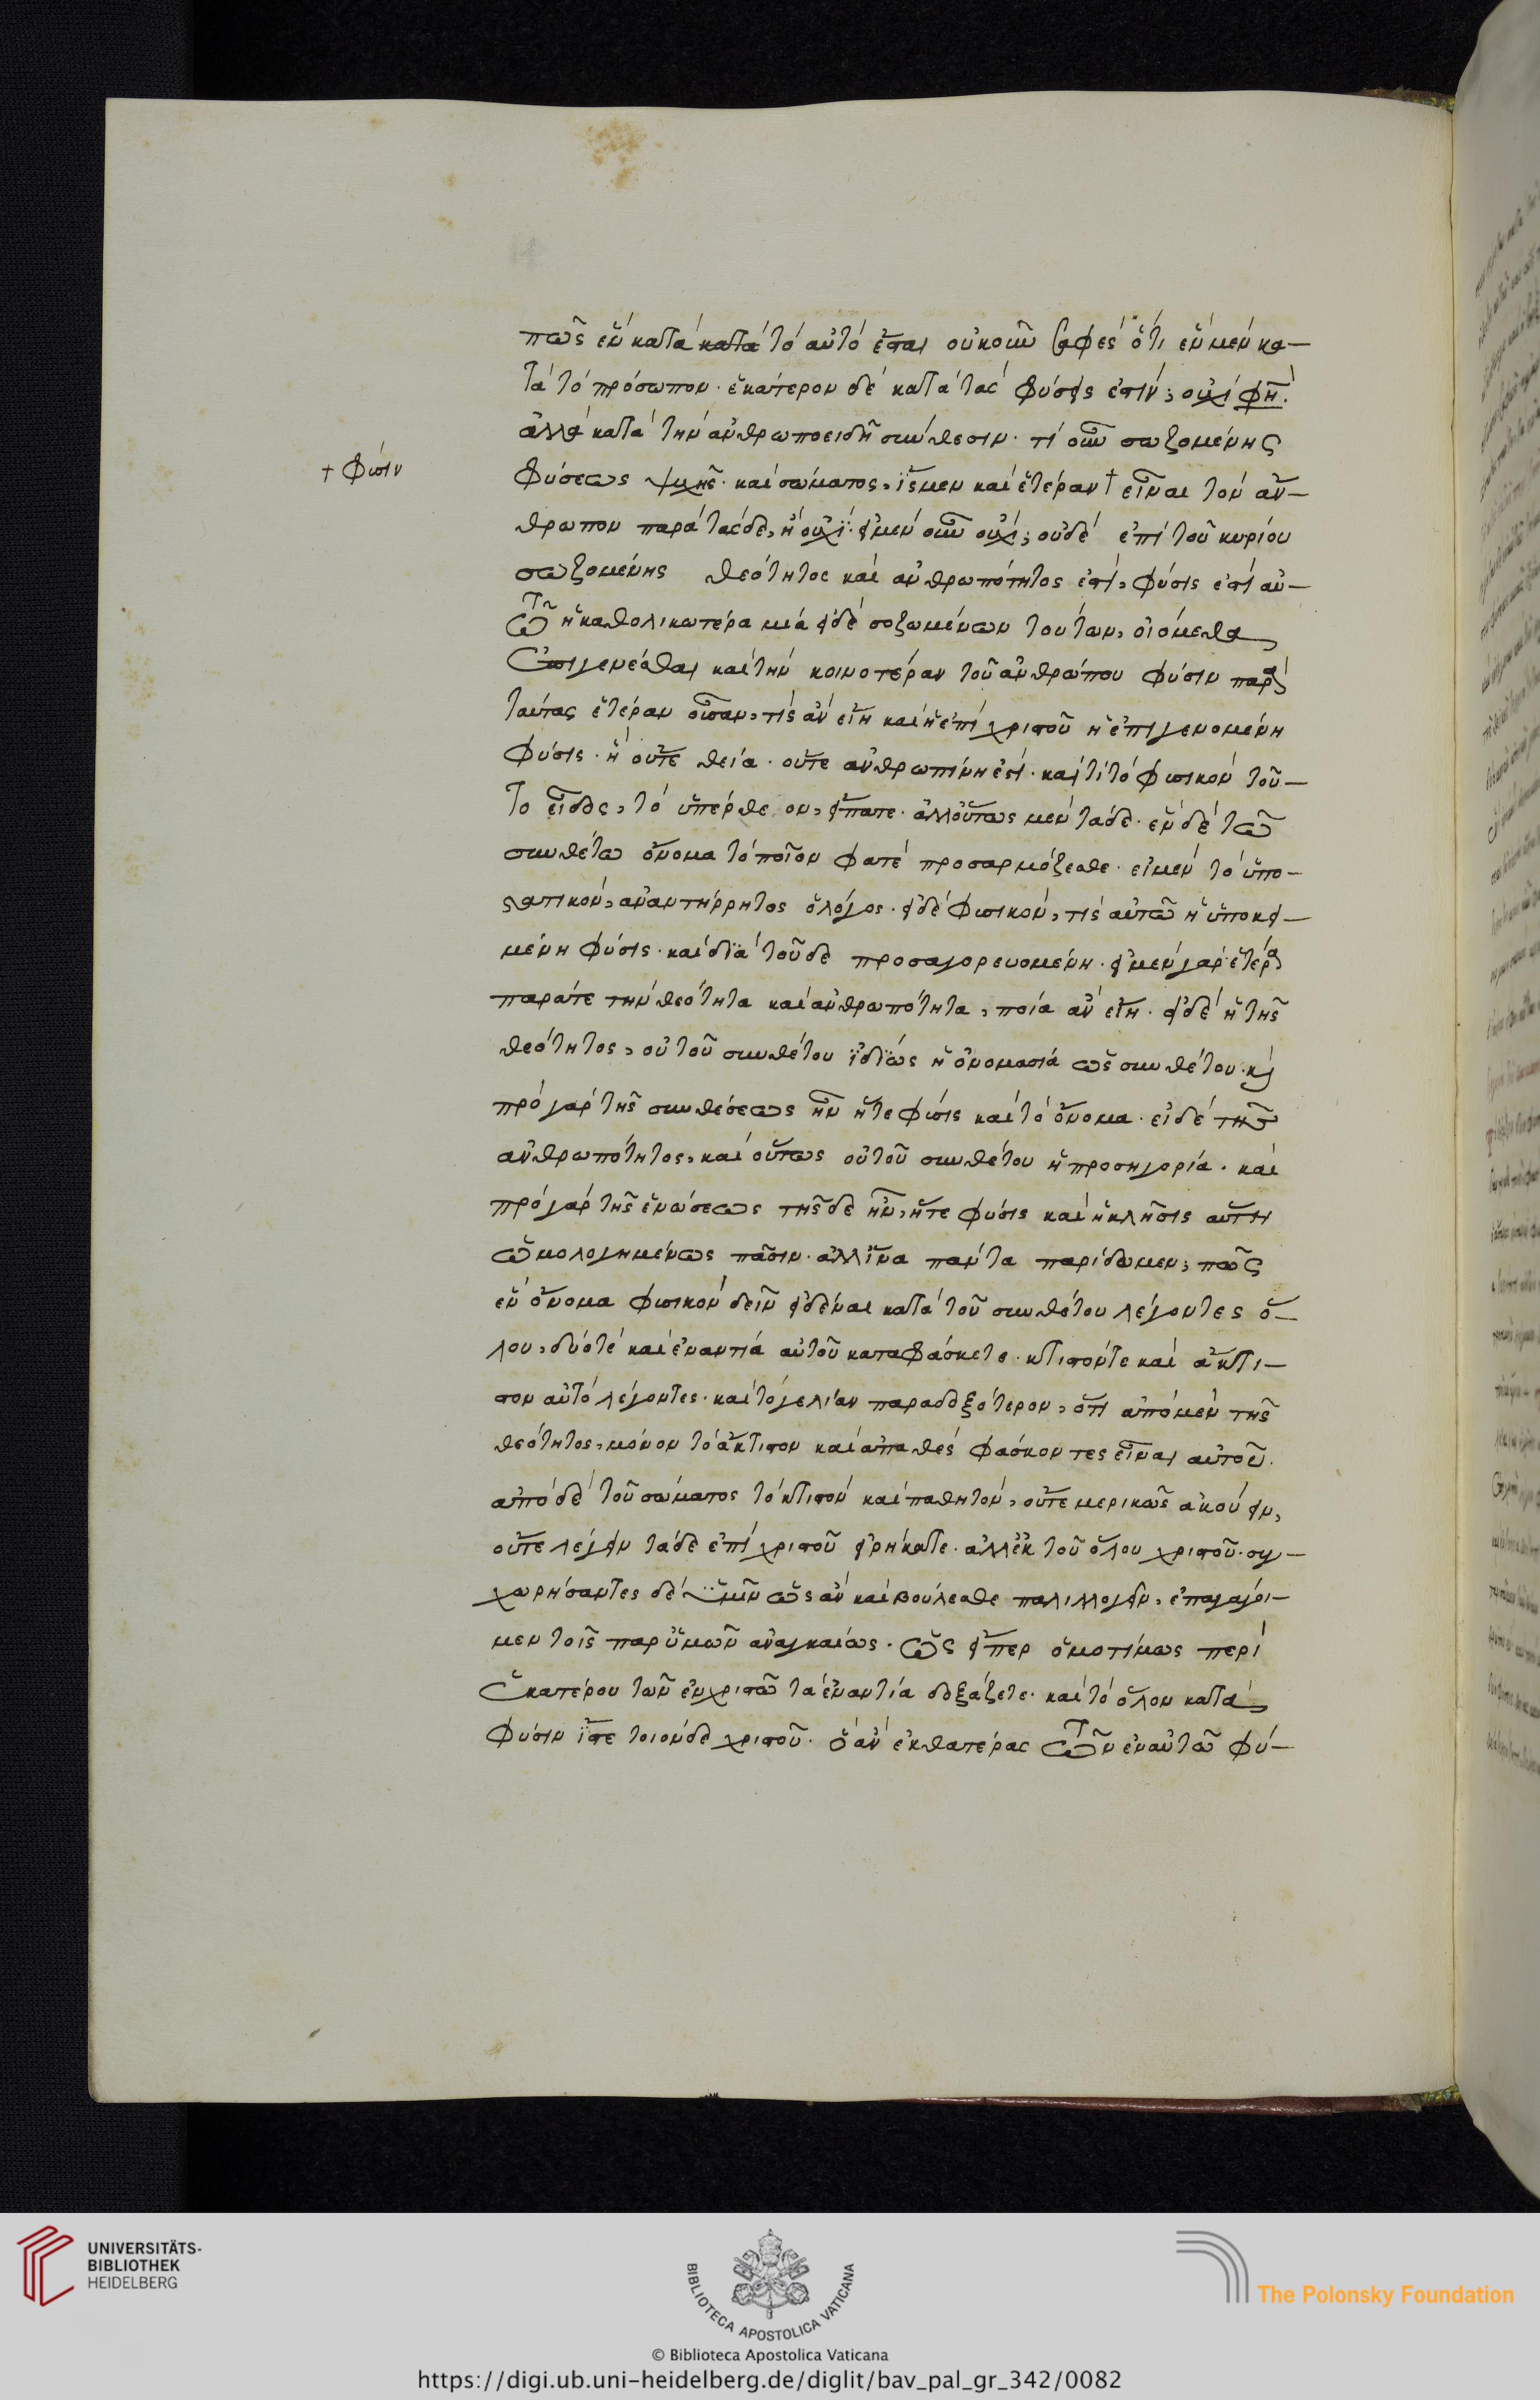 πῶς ἓν κατὰ κατὰ τὸ αὐτὸ ἔσται οὐκοῦν σαφὲς ὅτι ἓν μὲν κα-
τὰ τὸ πρόσωπον· ἑκάτερον δὲ κατὰ τὰς φύσεις ἐστίν; οὐχὶ φησὶ.
ἀλλὰ κατὰ τὴν ἀνθρωποειδῆ σύνθεσιν· τί οὖν σωζομένης
+ φύσιν
φύσεως ψυχῆς· καὶ σώματος, ἴσμεν καὶ ἑτέραν + εἶναι τὸν ἄν-
θρωπον παρὰ τάσδε, ἢ οὐχί· εἰ μὲν οὖν οὐχί; οὐδὲ ἐπὶ τοῦ κυρίου
σωζομένης θεότητος καὶ ἀνθρωπότητος ἐστὶ, φύσις ἐστὶ αὐ-
τῶ ἡ καθολικωτέρα μία εἰ δὲ σοζωμένων τούτων, οἰόμεθα
ἐπιγενέσθαι καὶ τὴν κοινοτέραν τοῦ ἀνθρώπου φύσιν παρὰ
ταύτας ἑτέραν οὖσαν, τίς ἂν εἴη καὶ ἡ ἐπὶ χριστοῦ ἡ ἐπιγενομένη
φύσις· ἣ οὔτε θεία· οὔτε ἀνθρωπίνη ἐστί· καὶ τί τὸ φυσικὸν τοῦ-
το εἶδος, τὸ ὑπέρθεον, εἴπατε· ἀλλ οὕτως μὲν τάδε· ἓν δὲ τῶ
συνθέτω ὄνομα τὸ ποῖον φατὲ προσαρμόζεσθε· εἰ μὲν τὸ ὑπο-
στατικὸν, ἀναντήρρητος ὁ λόγος· εἰ δὲ φυσικὸν, τίς αὐτῶ ἡ ὑποκει-
μένη φύσις· καὶ διὰ τοῦδε προσαγορευομένη· εἰ μὲν γὰρ ἑτέρα
παρά τε τὴν θεότητα καὶ ἀνθρωπότητα, ποία ἂν εἴη· εἰ δὲ ἡ τῆς
θεότητος, οὐ τοῦ συνθέτου ἰδίως ἡ ὀνομασία ὡς συνθέτου· καὶ
πρὸ γὰρ τῆς συνθέσεως ἦν ἥτε φύσις καὶ τὸ ὄνομα· εἰ δὲ τῆς
ἀνθρωπότητος, καὶ οὕτως οὐ τοῦ συνθέτου ἡ προσηγορία· καὶ
πρὸ γὰρ τῆς ἑνώσεως τῆσδε ἦν, ἥτε φύσις καὶ ἡ κλῆσις αὕτη
ὡμολογημένως πᾶσιν· ἀλλ ἵνα πάντα παρίδωμεν, πῶς
ἓν ὄνομα φυσικὸν δεῖν εἰδέναι κατὰ τοῦ συνθέτου λέγοντες ὅ-
λου, δύο τὲ καὶ ἐναντία αὐτοῦ καταφάσκετε· κτιστόν τε καὶ ἄκτι-
στον αὐτὸ λέγοντες· καὶ τό γε λίαν παραδοξότερον, ὅτι ἀπὸ μὲν τῆς
θεότητος, μόνον τὸ ἄκτιστον καὶ ἀπαθὲς φάσκοντες εἶναι αὐτοῦ.
ἀπὸ δὲ τοῦ σώματος τὸ κτιστὸν καὶ παθητὸν, οὔτε μερικῶς ἀκούειν,
οὔτε λέγειν τάδε ἐπὶ χριστοῦ εἰρήκατε· ἀλλ ἐκ τοῦ ὅλου χριστοῦ· συγ-
χωρήσαντες δὲ ὑμῖν ὡς ἂν καὶ βούλεσθε παλιλλογεῖν, ἐπαγάγοι-
μεν τοῖς παρ ὑμῶν ἀναγκαίως· ὡς εἴπερ ὁμοτίμως περὶ
ἑκατέρου τῶν ἐν χριστῶ τὰ ἐναντία δοξάζετε· καὶ τὸ ὅλον κατὰ
φύσιν ἴστε τοιόνδε χριστοῦ· ὃ ἂν ἐκθατέρας τῶν ἐν αὐτῶ φύ-
UNIVERSITÄTS-
BIBLIOTHEK
HEIDELBERG
BIBLIOTECA APOSTOLICA VATICANA
The Polonsky Foundation
© Biblioteca Apostolica Vaticana
https://digi.ub.uni-heidelberg.de/diglit/bav_pal_gr_342/0082